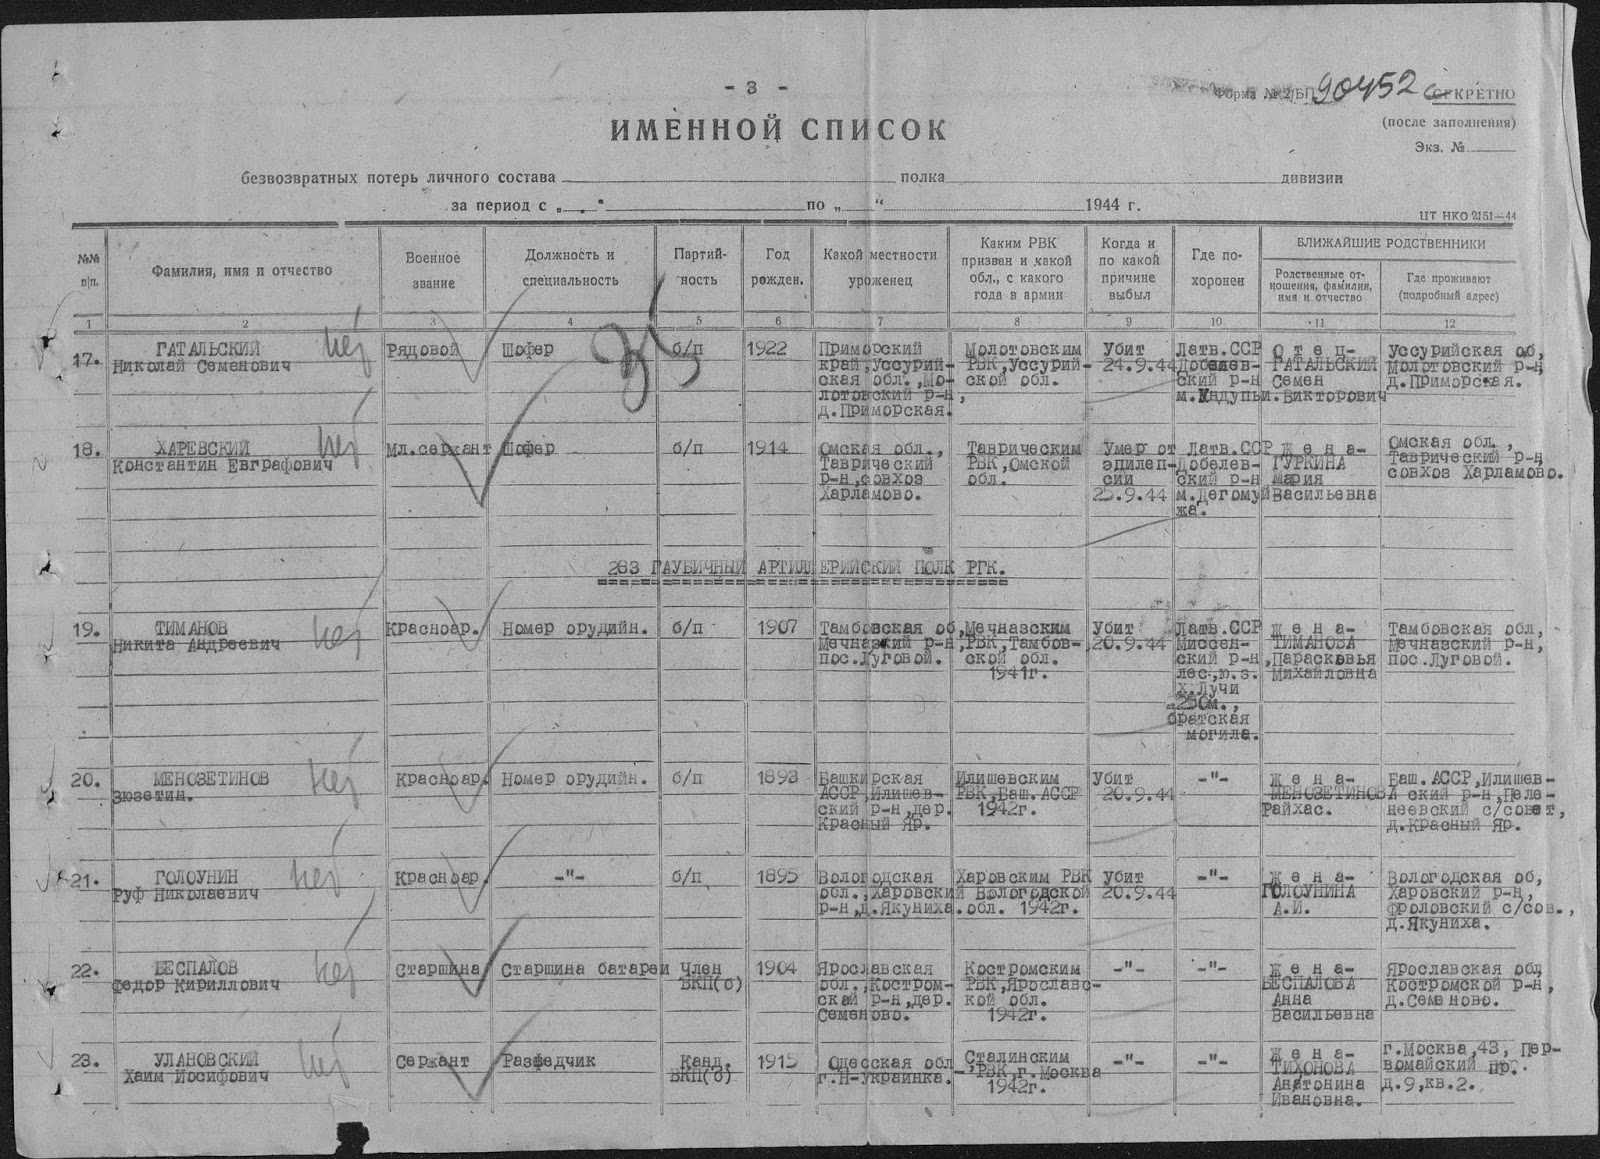 - 3 -
Форма № 2/БП 90452 СЕКРЕТНО
(после заполнения)
Экз. №
ИМЕННОЙ СПИСОК
безвозвратных потерь личного состава полка дивизии
за период с „ “ по „ “ 1944 г.
ЦТ НКО 2151—44
№№ п/п.
Фамилия, имя и отчество
Военное звание
Должность и специальность
Партийность
Год рожден.
Какой местности уроженец
Каким РВК призван и какой обл., с какого года в армии
Когда и по какой причине выбыл
Где похоронен
БЛИЖАЙШИЕ РОДСТВЕННИКИ
Родственные отношения, фамилия, имя и отчество
Где проживают (подробный адрес)
1 2 3 4 5 6 7 8 9 10 11 12
17. ГАТАЛЬСКИЙ
Николай Семенович
нет
Рядовой
Шофер
б/п
1922
Приморский
край,Уссурий-
ская обл.,Мо-
лотовский р-н,
д.Приморская.
Молотовским
РВК,Уссурий-
ской обл.
Убит
24.9.44
Латв.ССР
Добелев-
ский р-н
О т е ц-
ГАТАЛЬСКИЙ
Семен
Викторович
Уссурийская об,
Молотовский р-н,
д.Приморская.
18. ХАРЕВСКИЙ
Константин Евграфович
нет
Мл.сержант
Шофер
б/п
1914
Омская обл.,
Таврический
р-н,совхоз
Харламово.
Таврическим
РВК,Омской
обл.
Умер от
эпилеп-
сии
25.9.44
Латв.ССР
Добелев-
ский р-н
м.Дегомуй
жа.
Ж е н а-
ГУРКИНА
Мария
Васильевна
Омская обл.,
Таврический р-н,
совхоз Харламово.
283 ГАУБИЧНЫЙ АРТИЛЛЕРИЙСКИЙ ПОЛК РГК.
19. ТИМАНОВ
Никита Андреевич
нет
Красноар.
Номер орудийн.
б/п
1907
Тамбовская об,
Мечназкий р-н,
пос.Луговой.
Мечназским
РВК,Тамбов-
ской обл.
1941г.
Убит
20.9.44
Латв.ССР
Миссен-
ский р-н,
лес,ю.з.
х.Лучи
250м.,
братская
могила.
Ж е н а-
ТИМАНОВА
Парасковья
Михайловна
Тамбовская обл,
Мечнавский р-н,
пос.Луговой.
20. МЕНОЗЕТИНОВ
Зюзетин.
нет
Красноар.
Номер орудийн.
б/п
1893
Башкирская
АССР,Илишев-
ский р-н,дер.
Красный Яр.
Илишевским
РВК,Баш.АССР
1942г.
Убит
20.9.44
-"-
Ж е н а-
МЕНОЗЕТИНОВА
Райхас.
Баш.АССР,Илишев-
ский р-н,Пеле-
неевский с/совет,
д.Красный Яр.
21. ГОЛОУНИН
Руф Николаевич
нет
Красноар.
-"-
б/п
1895
Вологодская
обл.,Харовский
р-н,д.Якуниха.
Харовским РВК
Вологодской
обл. 1942г.
убит
20.9.44
-"-
Ж е н а-
ГОЛОУНИНА
А.И.
Вологодская об,
Харовский р-н,
Фроловский с/сов.,
д.Якуниха.
22. БЕСПАЛОВ
Федор Кириллович
нет
Старшина
Старшина батареи
Член
ВКП(б)
1904
Ярославская
обл.,Костром-
ской р-н,дер.
Семеново.
Костромским
РВК,Ярославс-
кой обл.
1942г.
-"-
-"-
Ж е н а-
БЕСПАЛОВА
Анна
Васильевна
Ярославская обл
Костромской р-н,
д.Семеново.
23. УЛАНОВСКИЙ
Хаим Иосифович
нет
Сержант
Разведчик
Канд.
ВКП(б)
1915
Одесская обл
г.Н-Украинка.
Сталинским
РВК,г.Москва
1942г.
-"-
-"-
Ж е н а-
ТИХОНОВА
Анатонина
Ивановна.
г.Москва,43, Пер-
вомайский пр.
д.9,кв.2.